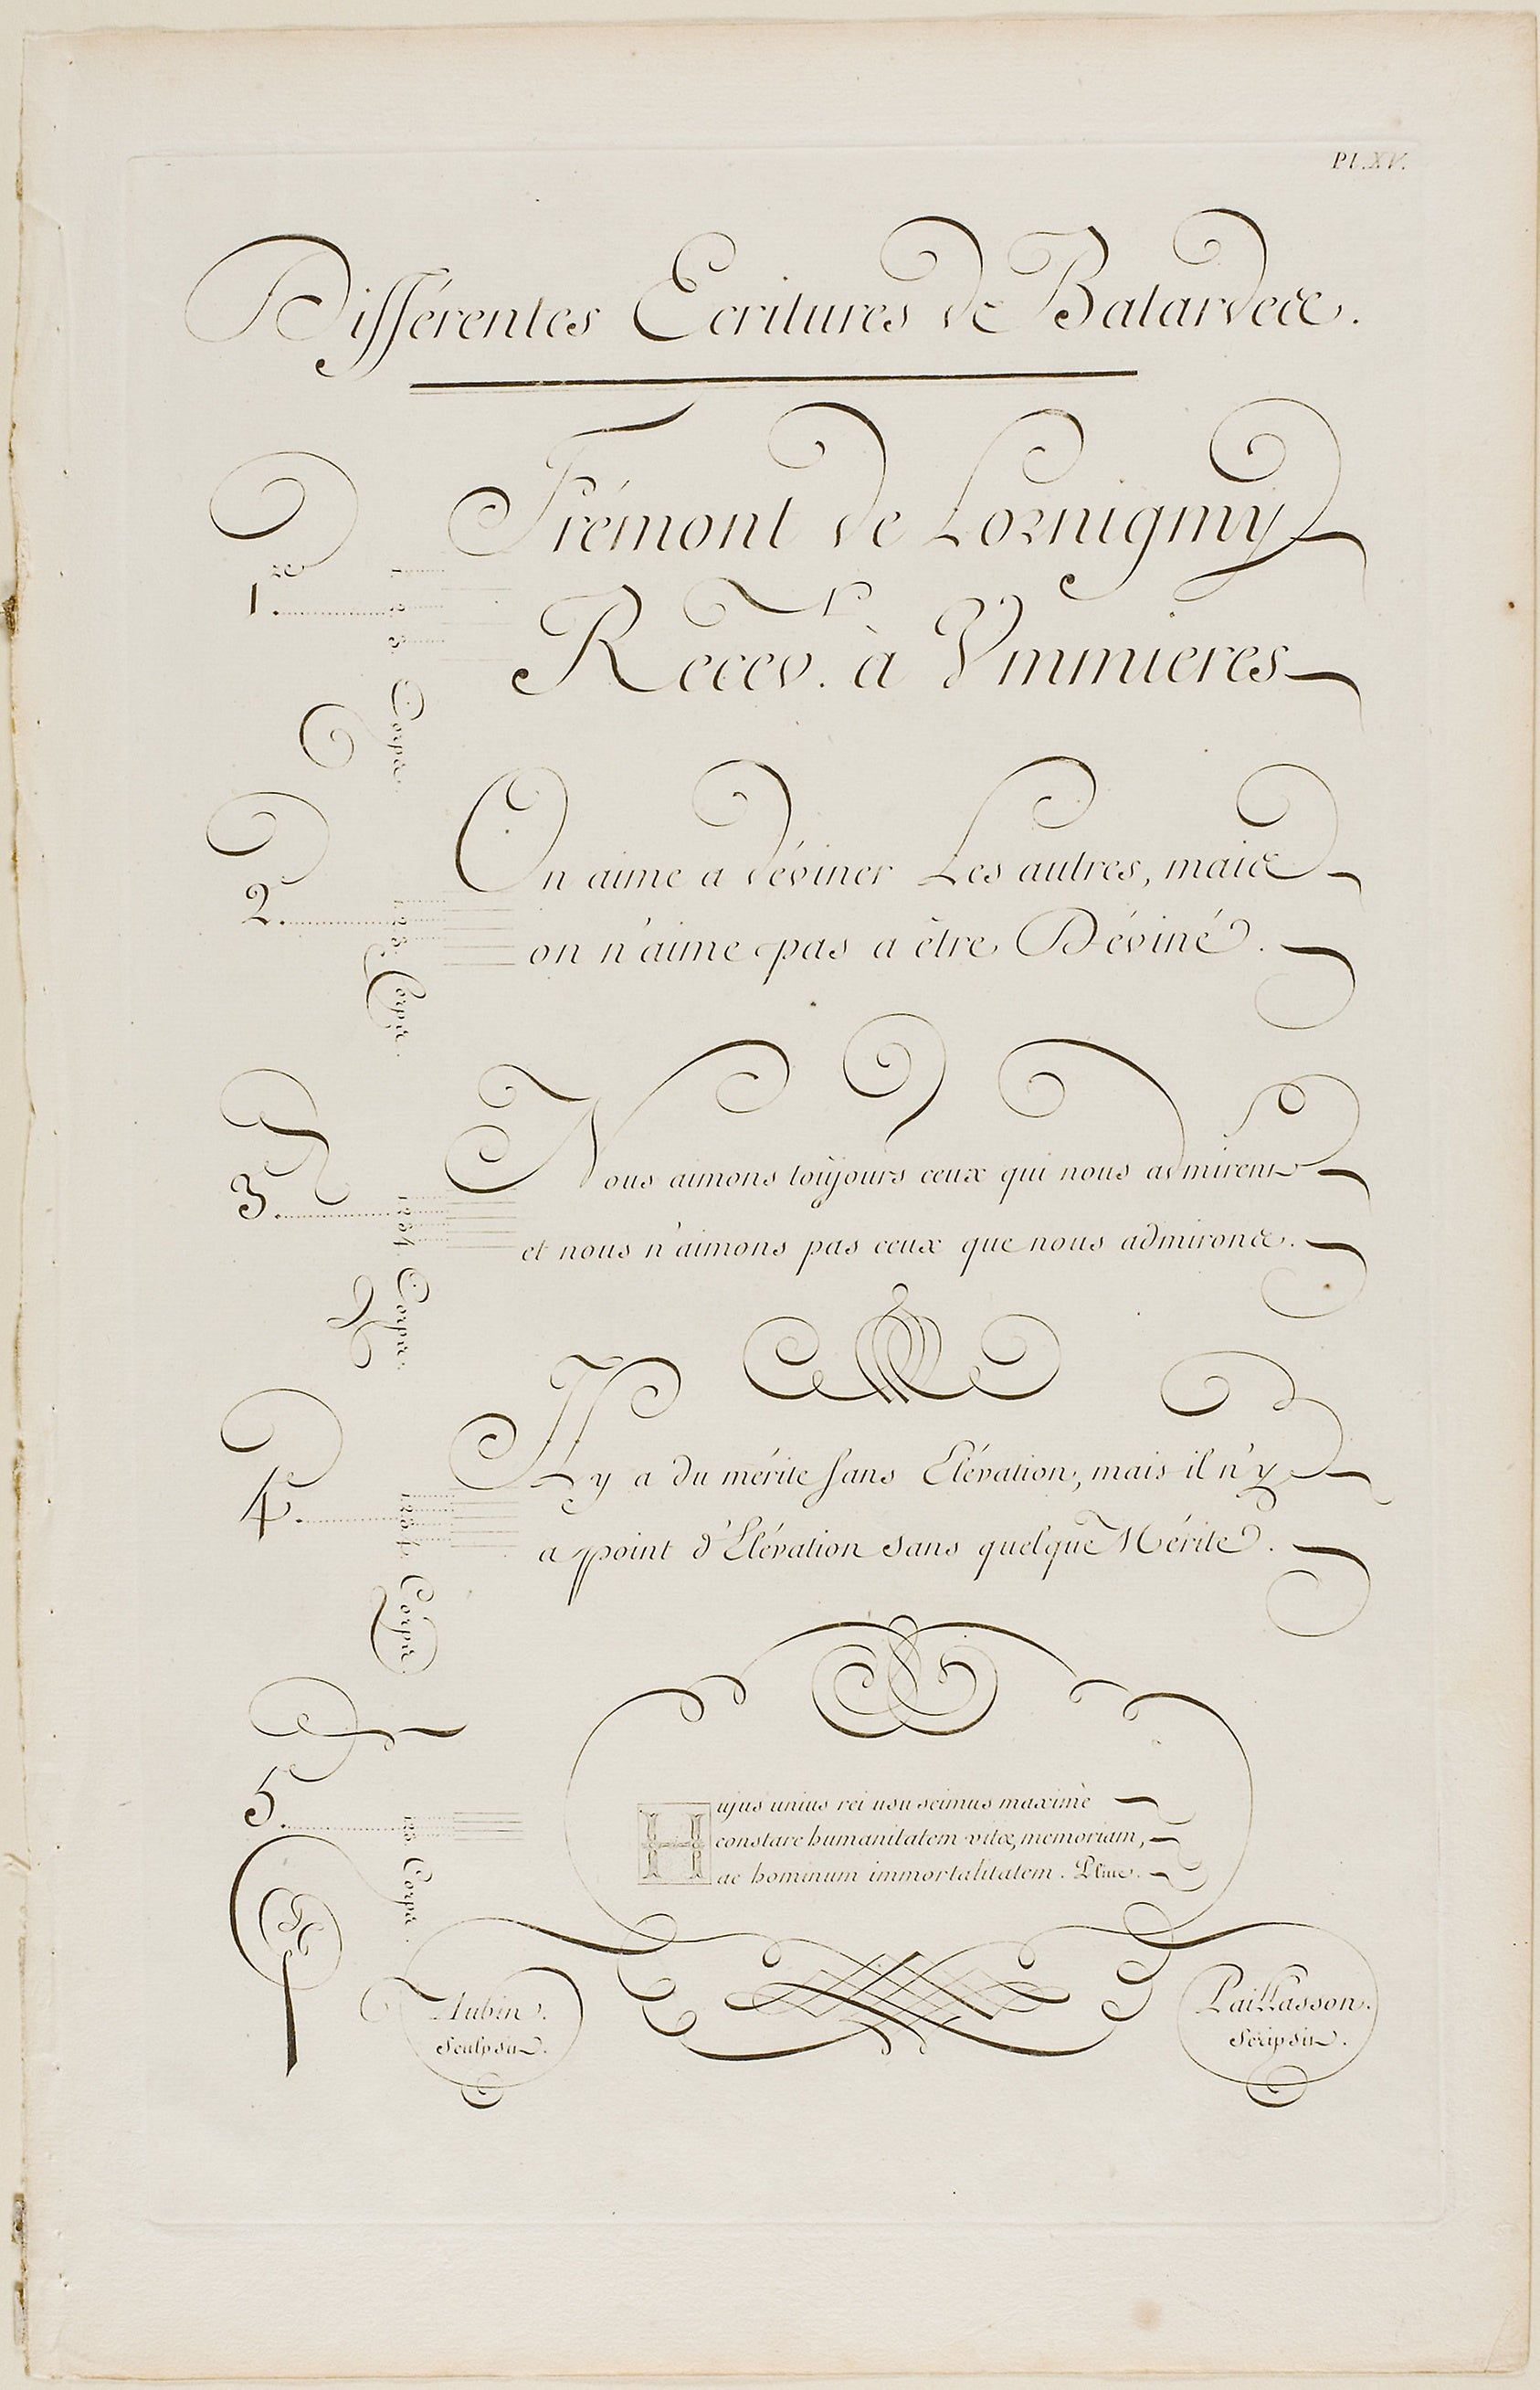 Pl. XV.
Différentes Ecritures de Batardes.
1.re
1 2 3. Corps.
Frémont de Lornigmy
Recev.r à Vmmieres
2.
1 2 3. Corps.
On aime a déviner Les autres, mais
on n'aime pas a être Déviné.
3.
1 2 3 4. Corps.
Nous aimons toujours ceux qui nous admirent
et nous n'aimons pas ceux que nous admirons.
4.
1 2 3 4. Corps.
Il y a du mérite sans Elévation, mais il n'y
a point d'Elévation sans quelque Mérite.
5.
1 2 3 Corps.
Hujus unius rei usu scimus maximè
constare humanitatem vitæ, memoriam,
ac hominum immortalitatem. Pline.
Aubin.
Sculpsit.
Paillasson.
Scripsit.